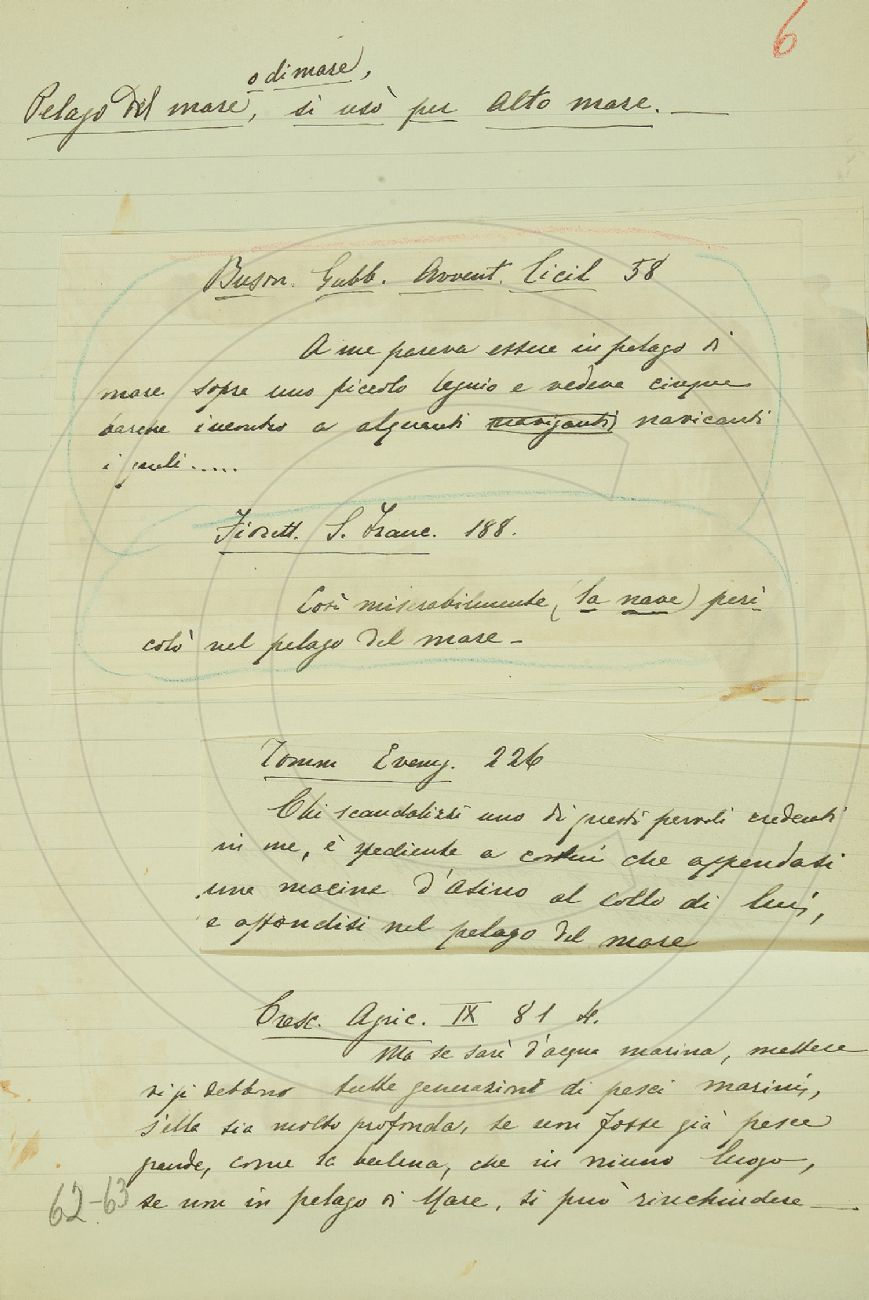 6
o di mare,
Pelago del mare, si usò per Alto mare. —
Buson. Gubb. Avvent. Cicil 58
A me pareva essere in pelago di
mare sopra uno piccolo legnio e vedeva cinque
barene incontro a alquanti naviganti navicanti
i quali.....
Fiorett. S. Franc. 188.
Così miserabilmente, (la nave) peri-
colò nel pelago del mare –
Tomm Evang. 226
Chi scandalizzi uno di questi parvoli credenti
in me, è spediente a costui che appendasi
una macine d'asino al collo di lui,
e affondisi nel pelago del mare
Cresc. Agric. IX 81 4.
Ma se sarà d'acqua marina, mettere
vi si debbono tutte generazioni di pesci marini,
s'ella sia molto profonda, se non fosse già pesce
grande, come la balena, che in niuno luogo,
62-63 se non in pelago di Mare, si può rinchiudere —